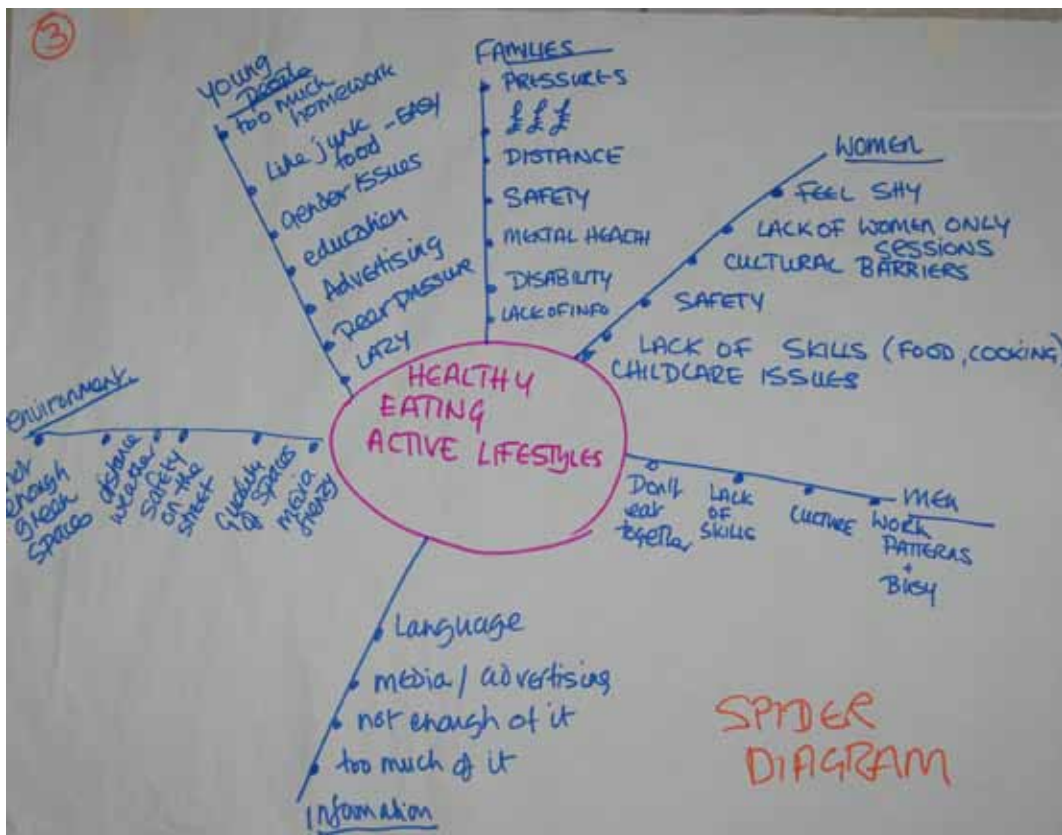 3
Young
People
too much
homework
Like junk
food - EASY
Gender Issues
education
Advertising
Peer pressure
LAZY
FAMILIES
PRESSURES
£££
DISTANCE
SAFETY
MENTAL HEALTH
DISABILITY
LACK OF INFO
WOMEN
FEEL SHY
LACK OF WOMEN ONLY
SESSIONS
CULTURAL BARRIERS
SAFETY
LACK OF SKILLS (FOOD, COOKING)
CHILDCARE ISSUES
HEALTHY
EATING
ACTIVE LIFESTYLES
environment
not
enough
green
spaces
distance
weather
safety
on the
street
Quality
of spaces
media
frenzy
MEN
Don't
eat
together
LACK
OF
SKILLS
CULTURE
WORK
PATTERNS
+
BUSY
Language
media / advertising
not enough of it
too much of it
Information
SPIDER
DIAGRAM